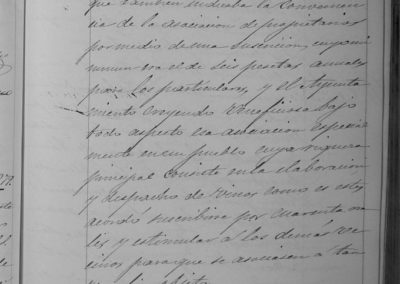 que tambien indicaba la convenien
cia de la asociacion de propietarios
por medio de una suscricion, cuyo mi
nimun era el de seis pesetas anuales
para los particulares, y el Ayunta
miento creyendo beneficiosa bajo
todo aspecto esa asociacion especial
mente en un pueblo cuya riqueza
principal consiste en la elaboracion
y despacho de vinos como es este,
acordó suscribirse por cuarenta rea
les y estimular a los demás ve
cinos para que se asociasen a tan
objeto